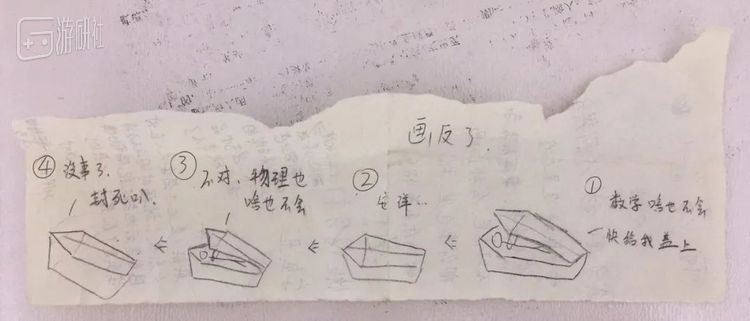 游研社
画反了.
① 数学啥也不会
快给我盖上
② 安详..
③ 不对、物理也
啥也不会
④ 没事了.
封死叭.